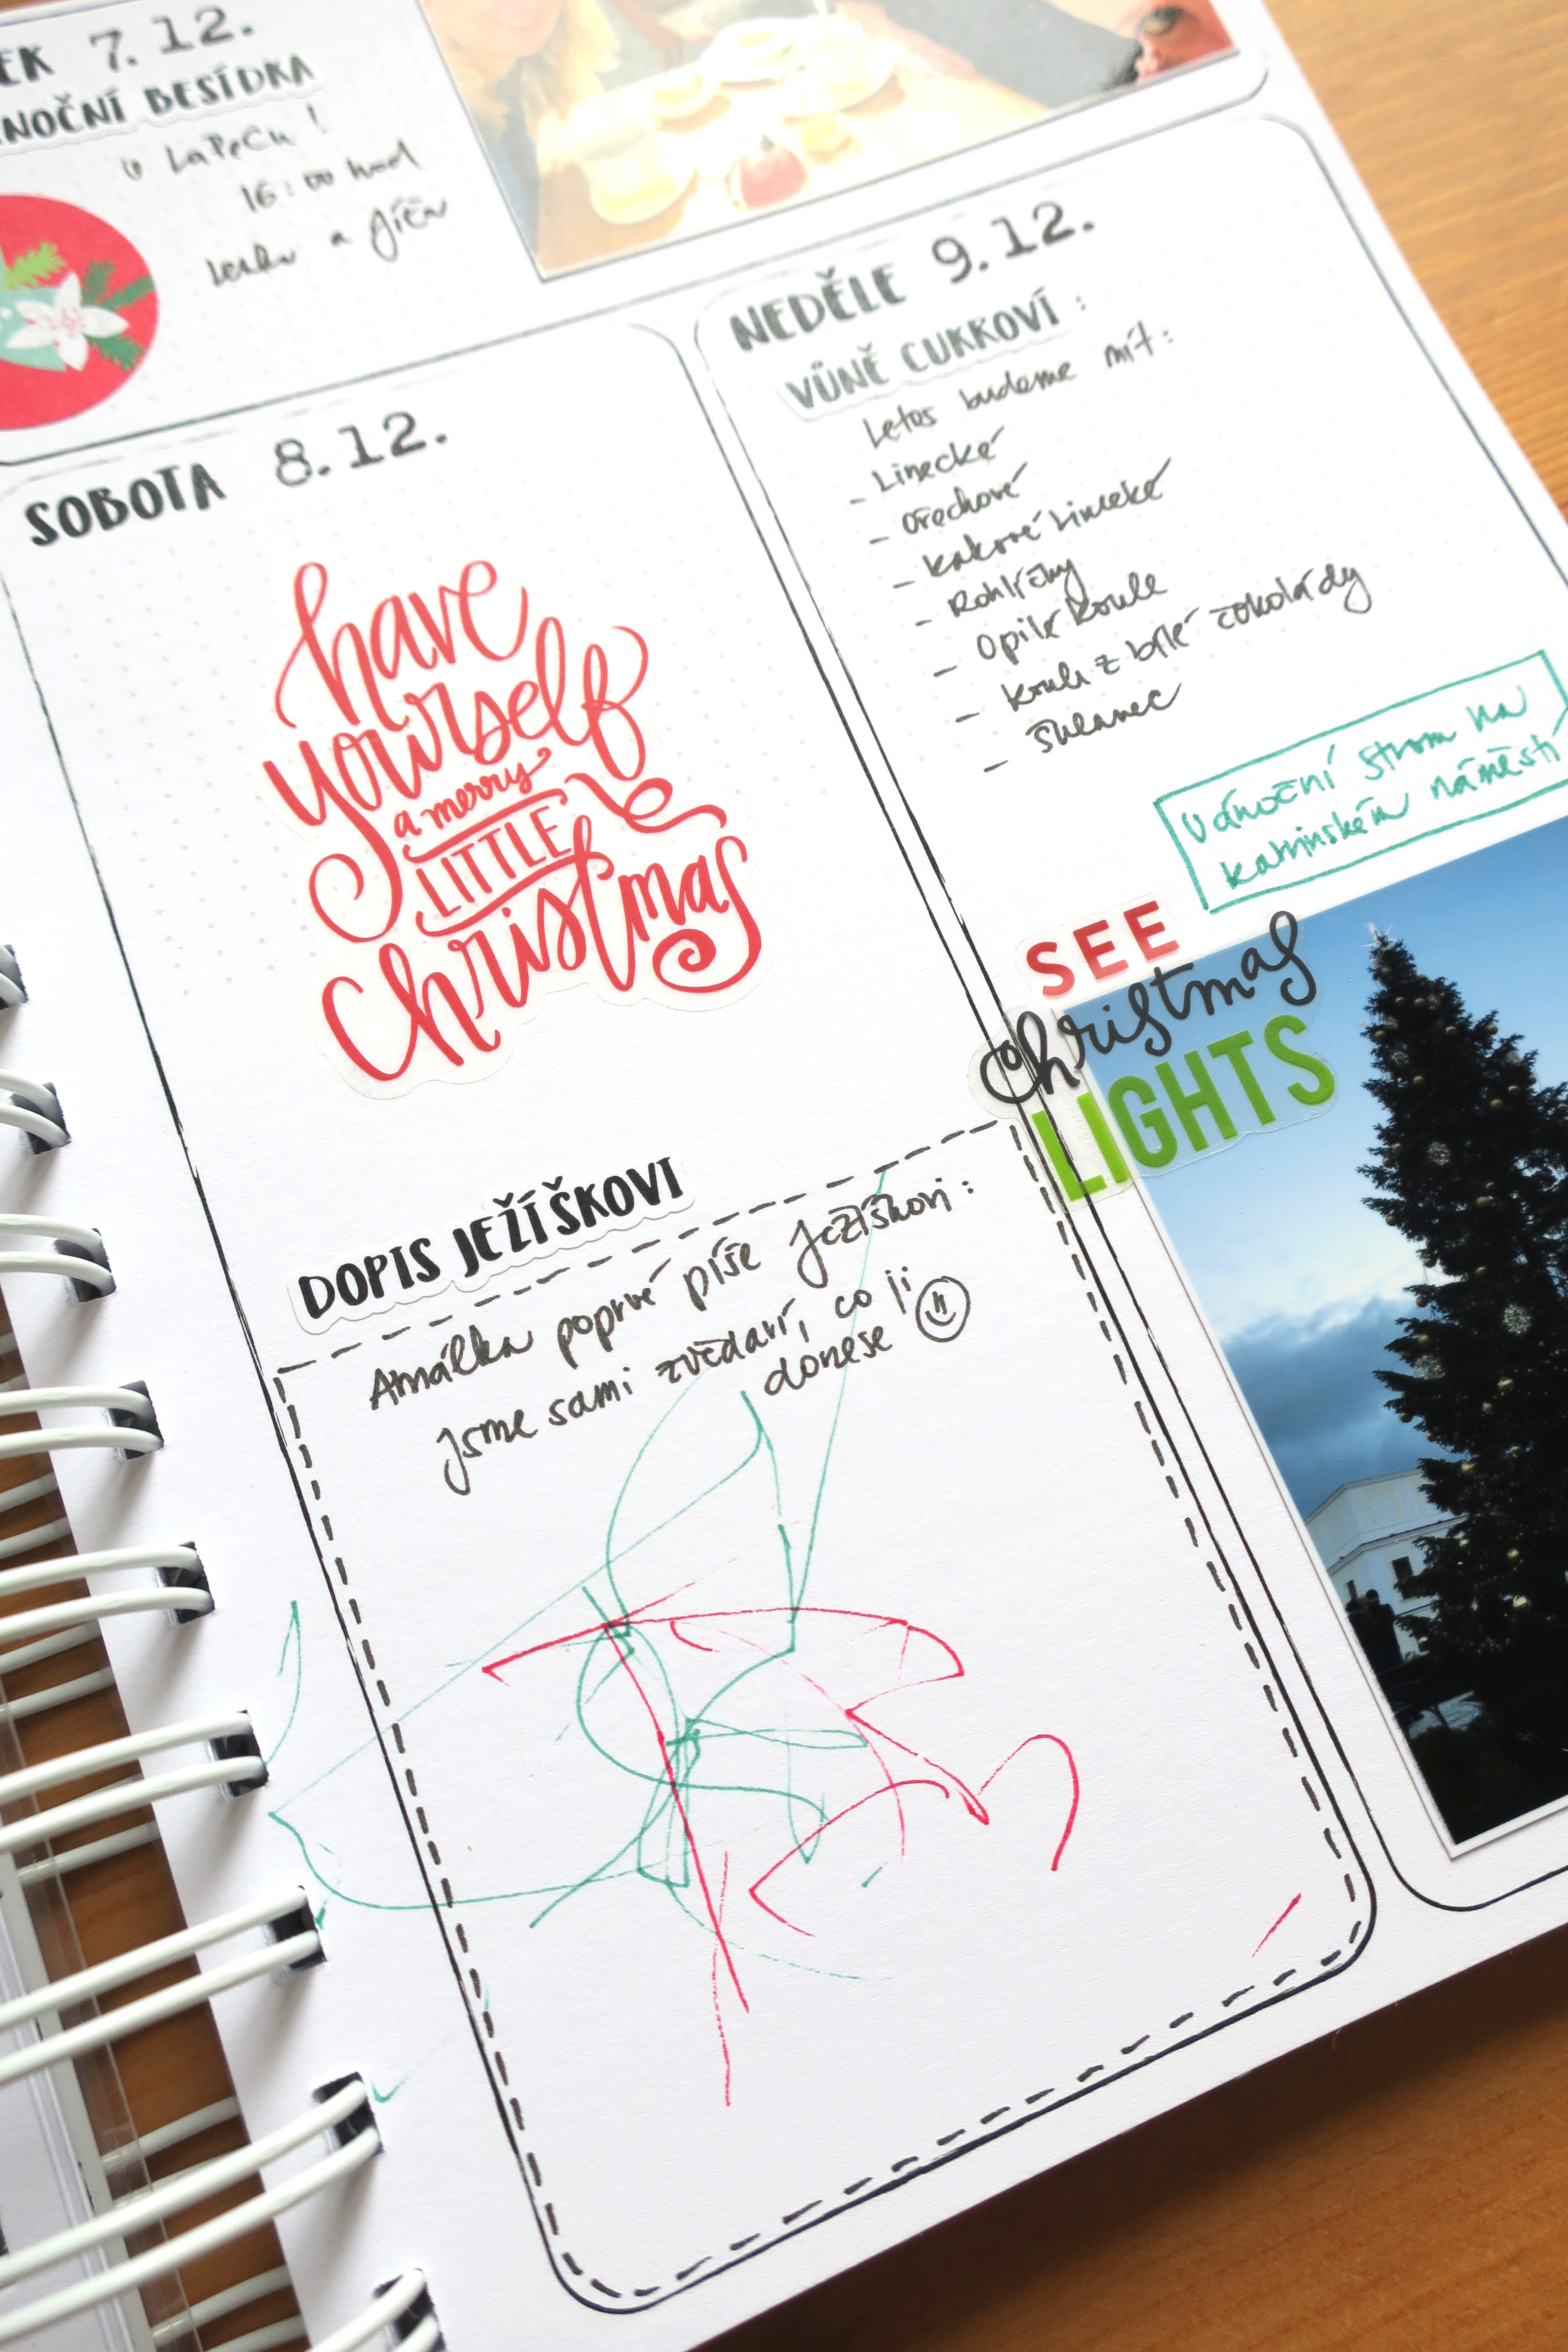 EK 7.12.
NOČNÍ BESÍDKA
v LaPeCu!
16:00 hod
a Jičín
SOBOTA 8.12.
have
yourself
a merry
LITTLE
Christmas
DOPIS JEŽÍŠKOVI
Amálka poprvé píše Ježíškovi:
Jsme sami zvědaví, co ji
donese
NEDĚLE 9.12.
VŮNĚ CUKROVÍ:
Letos budeme mít:
- Linecké
- Ořechové
- Kakaové Linecké
- Rohlíčky
- Opilé koule
- koule z bílé čokolády
-
Vánoční strom na
náměstí
SEE
Christmas
LIGHTS